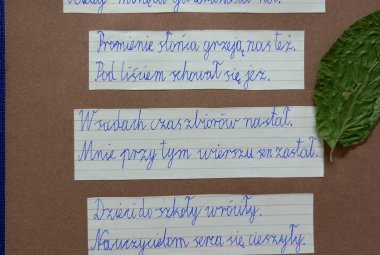 Promienie słońca grzeją nas też.
Pod liściem schował się jeż.
W sadach czas zbiorów nastał.
Mnie przy tym wierszu sen zastał.
Dzieci do szkoły wróciły.
Nauczycielom serca się cieszyły.